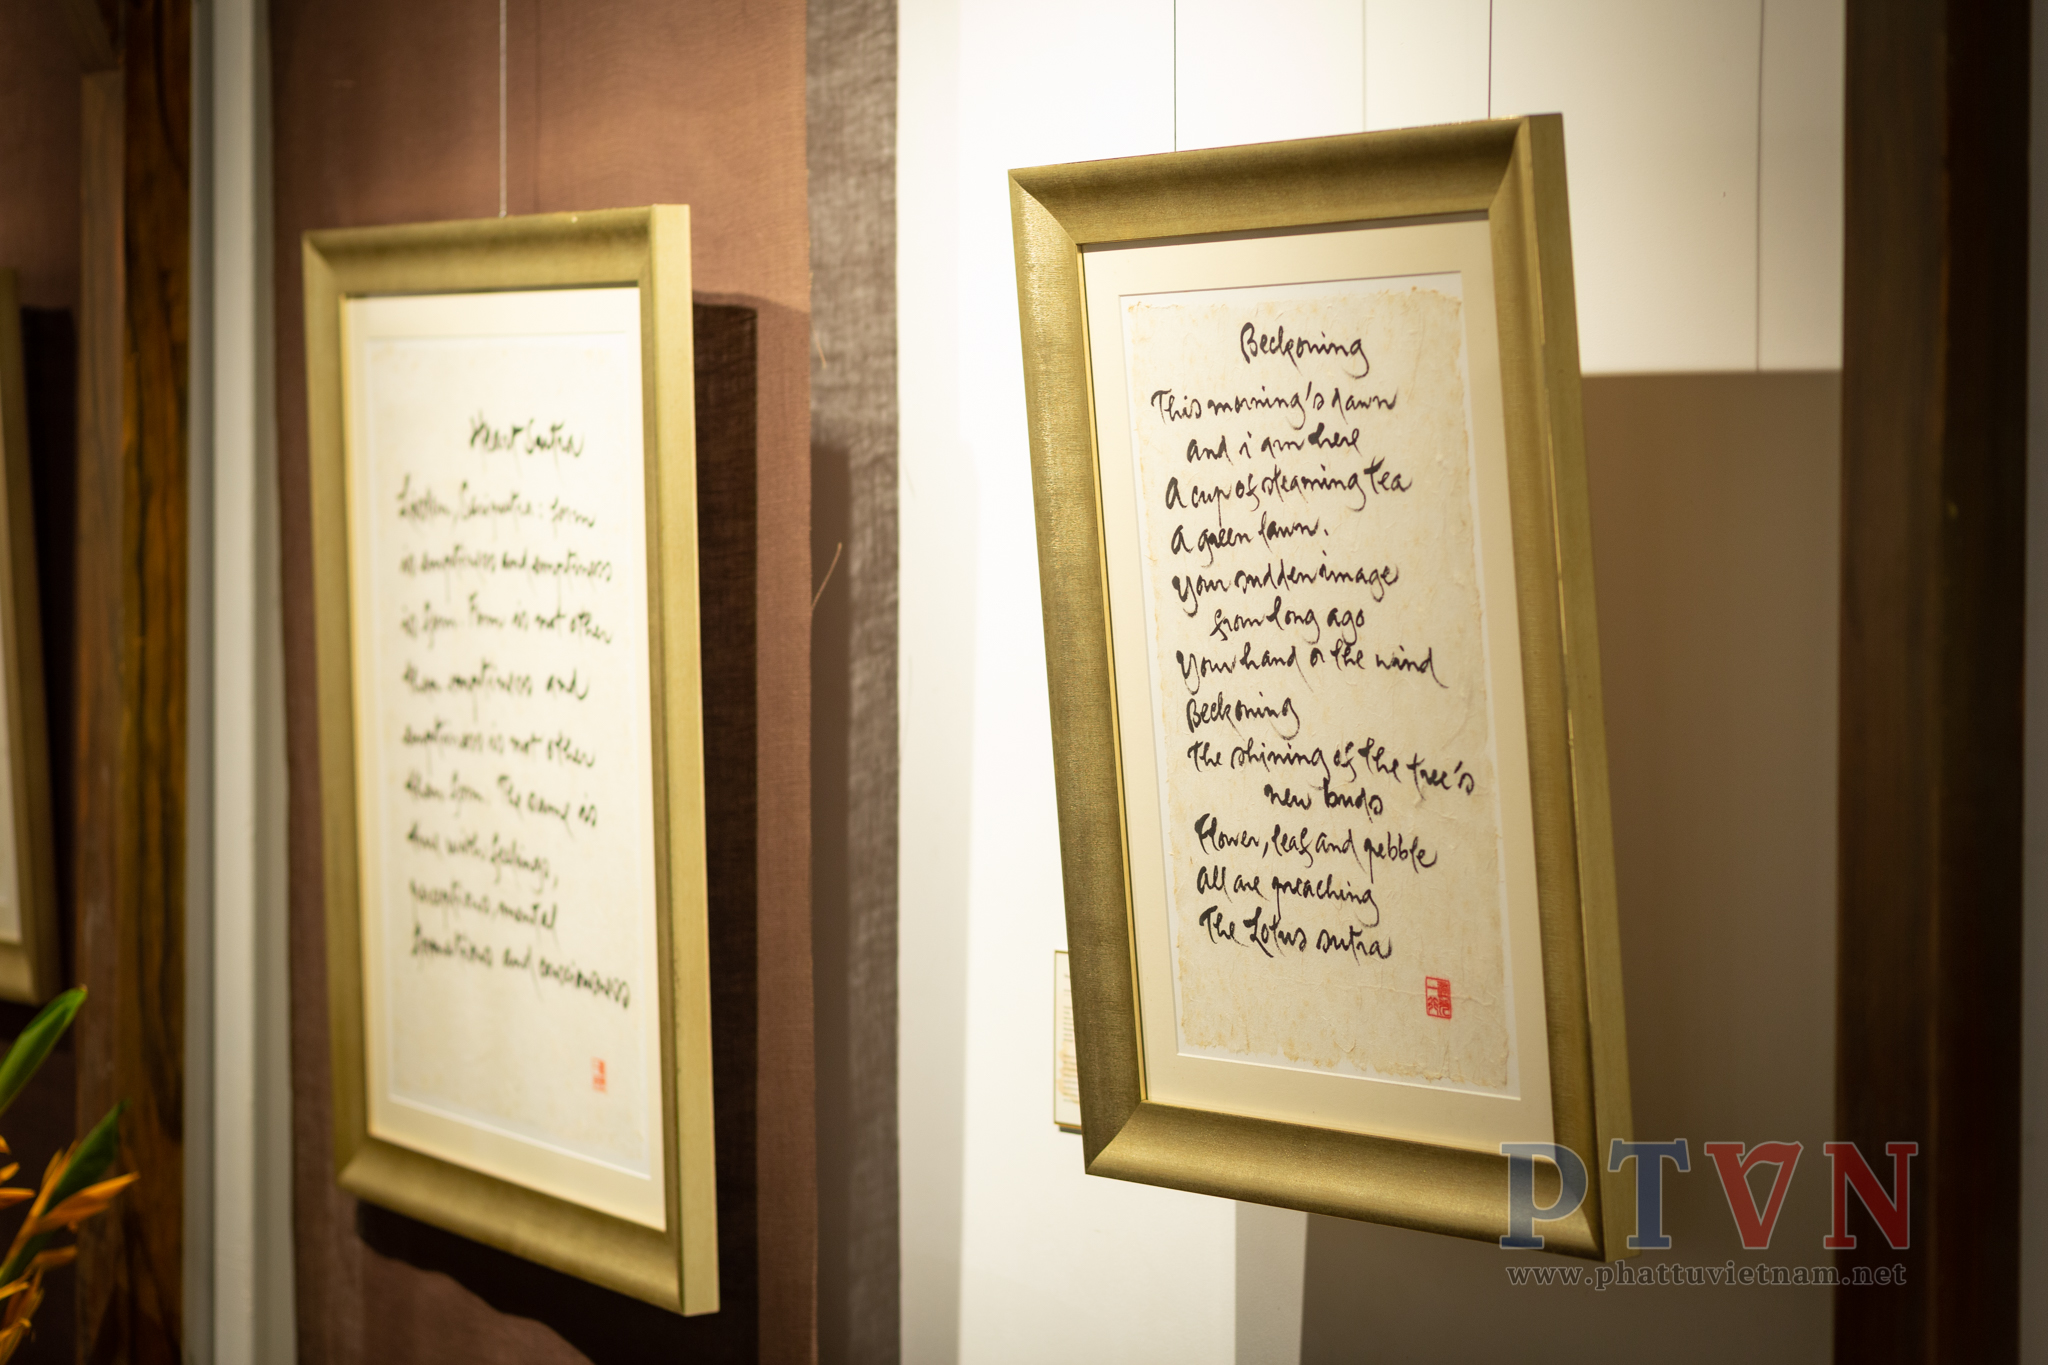 Heart Sutra
Listen, Shariputra: form
is emptiness and emptiness
is form. Form is not other
than emptiness and
emptiness is not other
than form. The same is
true with feelings,
perceptions, mental
formations and consciousness
Beckoning
This morning's dawn
and i am here
A cup of steaming tea
A green lawn.
Your sudden image
from long ago
Your hand or the wind
Beckoning
The shining of the tree's
new buds
Flower, leaf and pebble
All are preaching
The Lotus sutra
PTVN
www.phattuvietnam.net